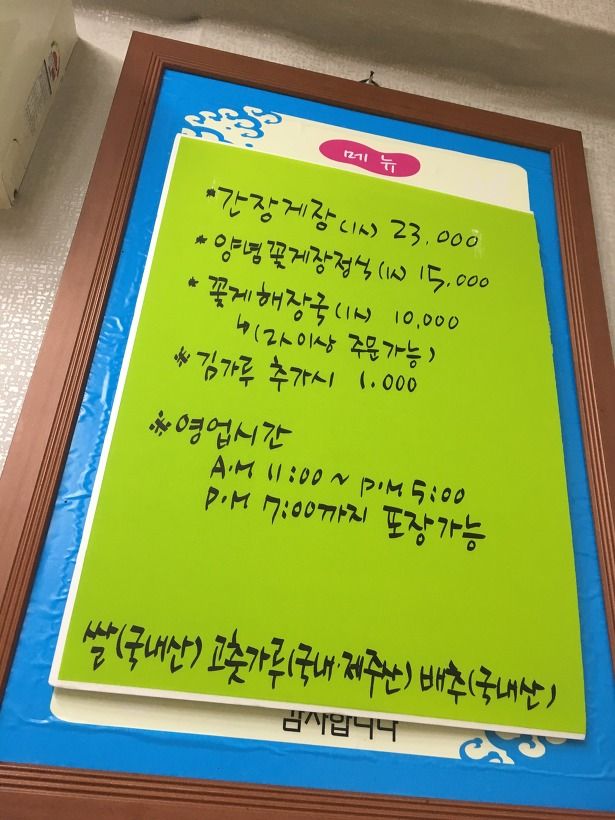 메뉴
*간장게장(1人) 23,000
*양념꽃게장정식(1人) 15,000
*꽃게해장국(1人) 10,000
↳(2人이상 주문가능)
※김가루 추가시 1.000
※영업시간
A.M 11:00 ~ P.M 5:00
P.M 7:00까지 포장가능
쌀(국내산) 고춧가루(국내·제주산) 배추(국내산)
감사합니다